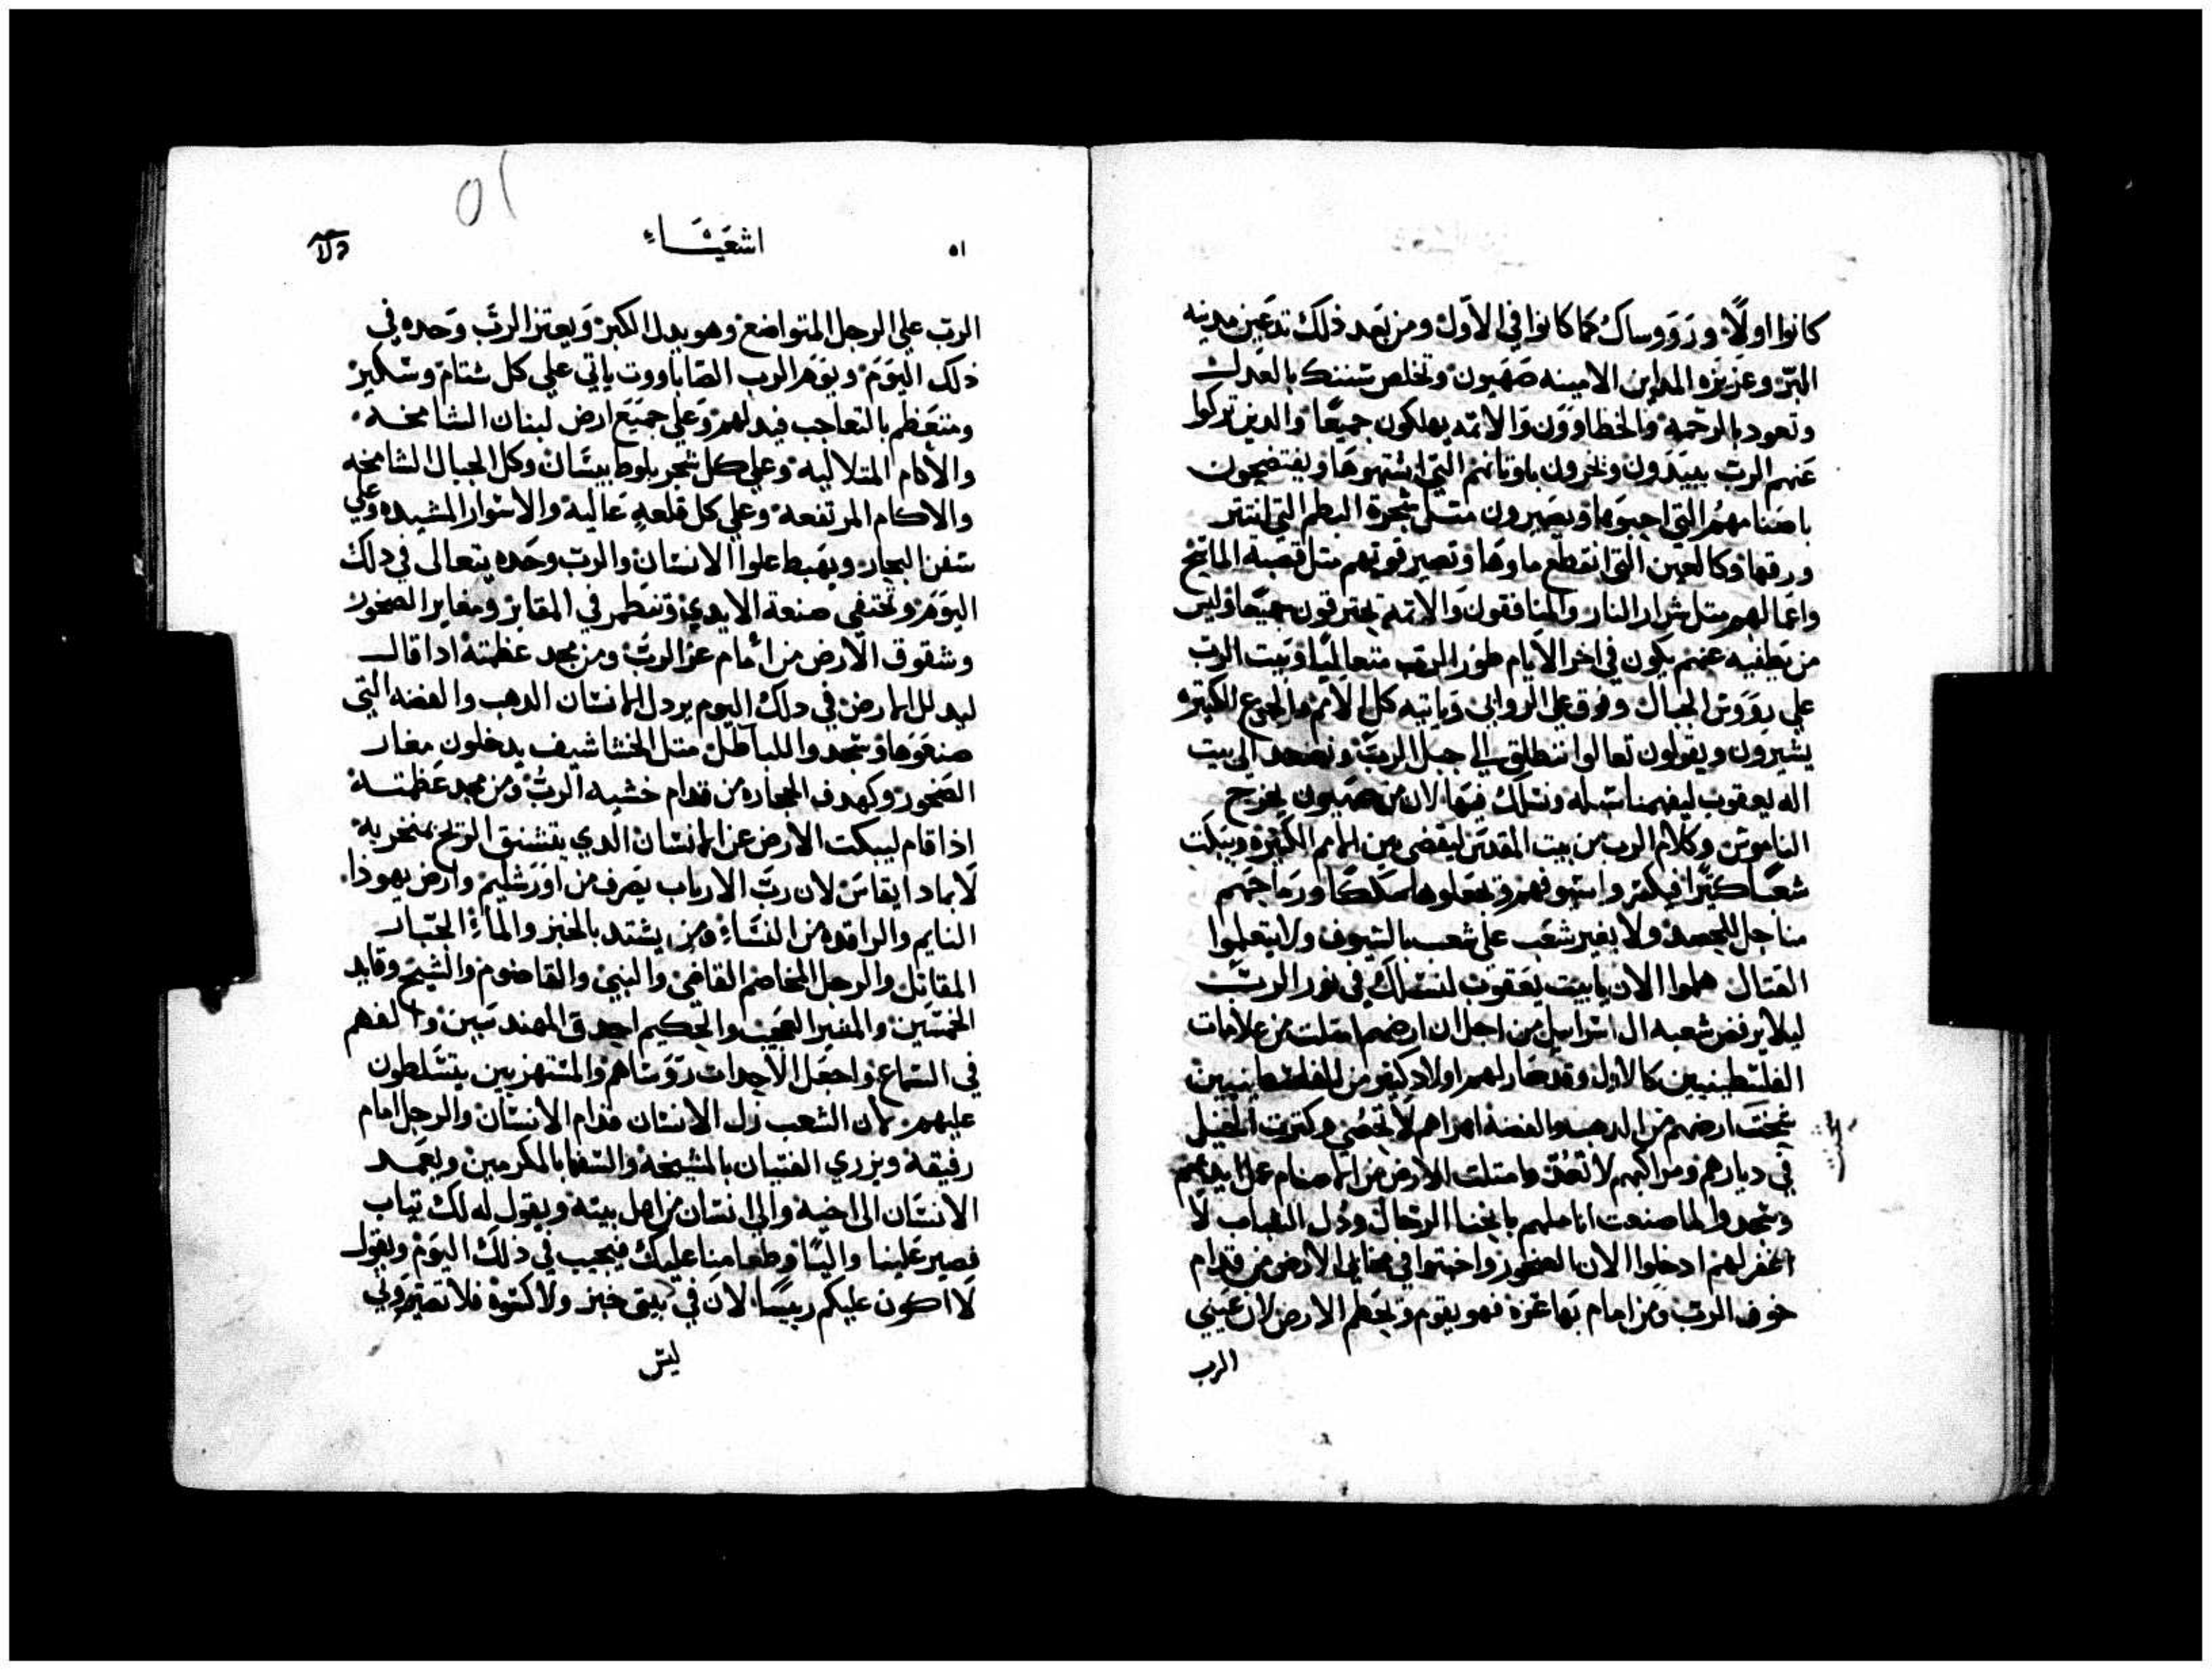 كانوا اولًا ورووساك كما كانوا في الاول ومن بعد ذلك تدعين مدينه
البر وعزيزه المداين الامينه صهيون وتخلص سننك بالعدل
وتعود بالرحمه والخطاوون والاتمه يهلكون جميعًا والدين تركوا
عنهم الرب يبيدون ويخزون باوتانهم التي اشتهوها ويفتضحون
باصنامهم التي احبوها ويصيرون متل شجرة البطم التي انتتر
ورقها وكالعين التي انقطع ماوها وتصير قوتهم متل قصبة
واعمالهم متل شرار النار والمنافقون والاتمه يحترقون جميعًا وليس
من يطفيه عنهم يكون في اخر الايام طور الرب متعاليًا وبيت الرب
علي رووس الجبال وفوق علي الروابي وياتيه كل الامم والجموع الكتيره
يشيرون ويقولون تعالوا ننطلق الي جبل الرب ونصعد الي بيت
اله يعقوب ليفهمنا سبله ونسلك فيها لان من صهيون يخرج
الناموس وكلام الرب من بيت المقدس ليقضي بين الامم الكتيره ويبكت
شعبًا كتيرًا فيكسروا سيوفهم ويجعلوها سككًا ورماحهم
مناجل للحصد ولا يغير شعب علي شعب بالسيوف ولا يتعلموا
القتال هلموا الان يا بيت يعقوب لنسلك في نور الرب
ليلا يرفض شعبه ال اسراييل من اجل ان ارضهم امتلت من علامات
الفلسطينيين كالاول وقد صار لهم اولاد كتير من الفلسطينيين
ارضهم من الدهب والفضه اهراهم لا تحصي وكترت الخيل
في ديارهم ومراكبهم لا تعد وامتلت الارض من الاصنام عمل ايديهم
وسجدوا لما صنعت اناملهم بانحنا الرجال ودل الشباب لا
اغفر لهم ادخلوا الان الصخور واختبوا في مخابي الارض من قدام
خوف الرب ومن امام بها عزه فهو يقوم ويحطم الارض لان عيني
الرب
٥١
٥١ اشعيَاء
الرب علي الرجل المتواضع وهو يدل الكبر ويعتز الرب وحده في
ذلك اليوم ويوم الرب الصاباووت ياتي علي كل شتام وسكير
ومتعظم بالتعاجب فيدلهم وعلي جميع ارض لبنان الشامخه
والاكام المتلاليه وعلي كل شجر بلوط بيسان وكل الجبال الشامخه
والاكام المرتفعه وعلي كل قلعه عاليه والاسوار المشيده وعلي
سفن البحار ويهبط علوا الانسان والرب وحده يتعالى في دلك
اليوم وتختفي صنعة الايدي وتنطمر في المقابر ومغاير الصخور
وشقوق الارض من امام عز الرب ومن مجد عظمته ادا قال
ليدلل الارض في دلك اليوم يردل الانسان الدهب والفضه التي
صنعوها وسجدوا للباطل متل الخشاشيف يدخلون مغار
الصخور وكهوف الحجاره من قدام خشيه الرب ومن مجد عظمته
اذا قام ليبكت الارض عن الانسان الدي يتنشق الريح بمنخريه
لانه بماد ايقاس لان رب الارباب يصرف من اورشليم وارض يهوذا
النايم والراقده من النساء ومن يشتد بالخبز والماء الجبار
المقاتل والرجل المخاصم القاضي والنبي والقاضوم والشيخ وقايد
الخمسين والمشير العجيب والحكيم احدق المهندسين والفهم
في السماع واجعل الاحداث روساهم والمستهزيين يتسلطون
عليهم لان الشعب زل الانسان قدام الانسان والرجل امام
رفيقه ويزري الفتيان بالمشيخه والسفها بالمكرمين ويعمد
الانسان الي اخيه والي انسان من اهل بيته ويقول له لك تياب
فصير علينا واليًا وطعامنا عليك فيجيب في ذلك اليوم ويقول
لا اكون عليكم رييسًا لان في بيتي خبز ولا كسوة فلا تصيروني
ليس